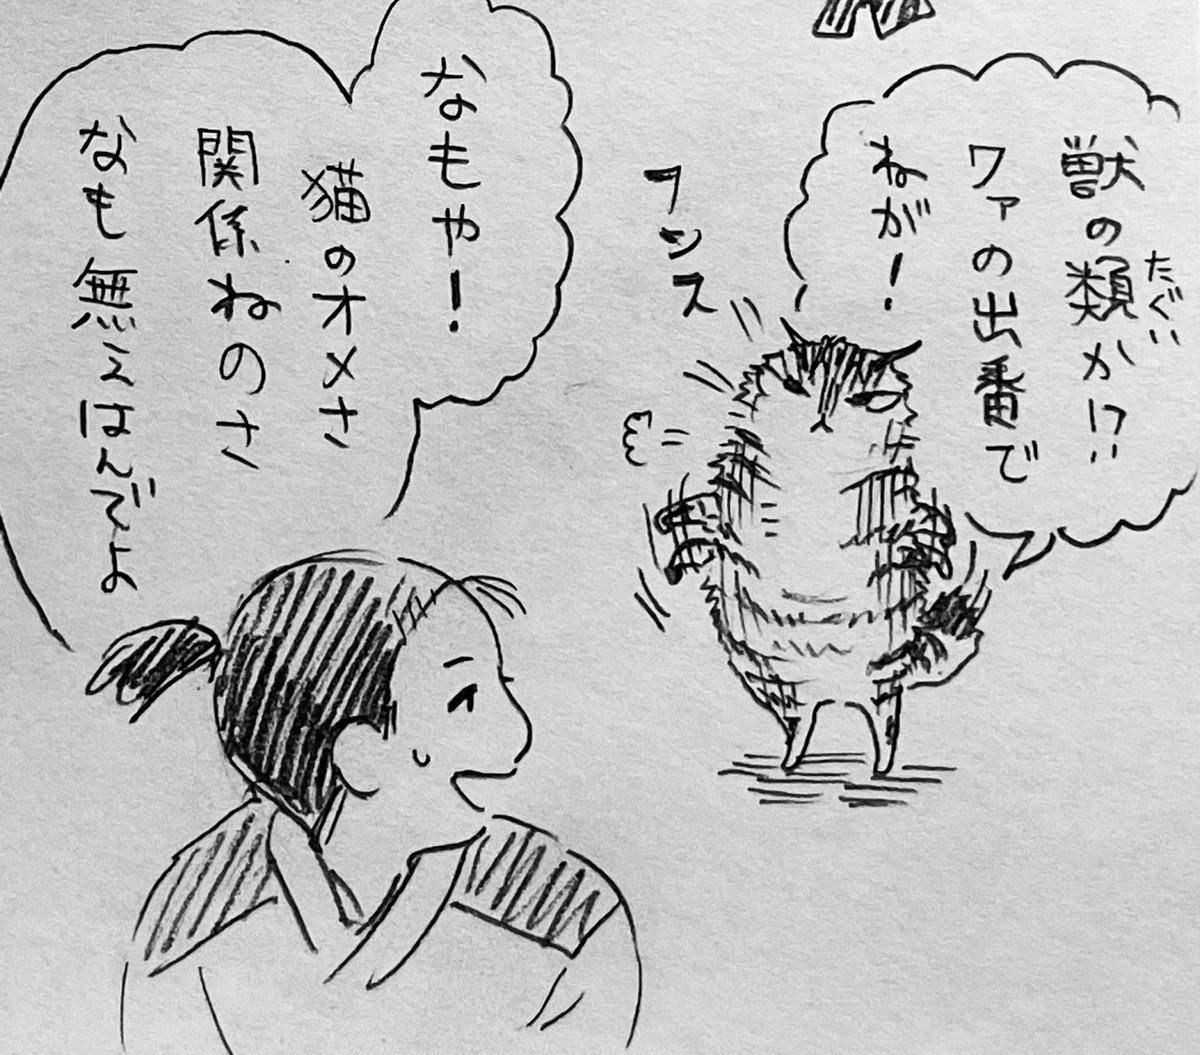 獣の類か!?
たぐい
ワァの出番で
ねが!
フンス
なもや!
猫のオメさ
関係ねのさ
なも無ぇはんでよ